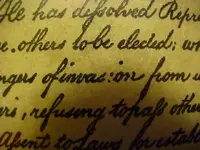 He has dissolved Repre
se, others to be elected; wh
ngers of invasion from w
ers, refusing to pass othe
Assent to Laws for establ